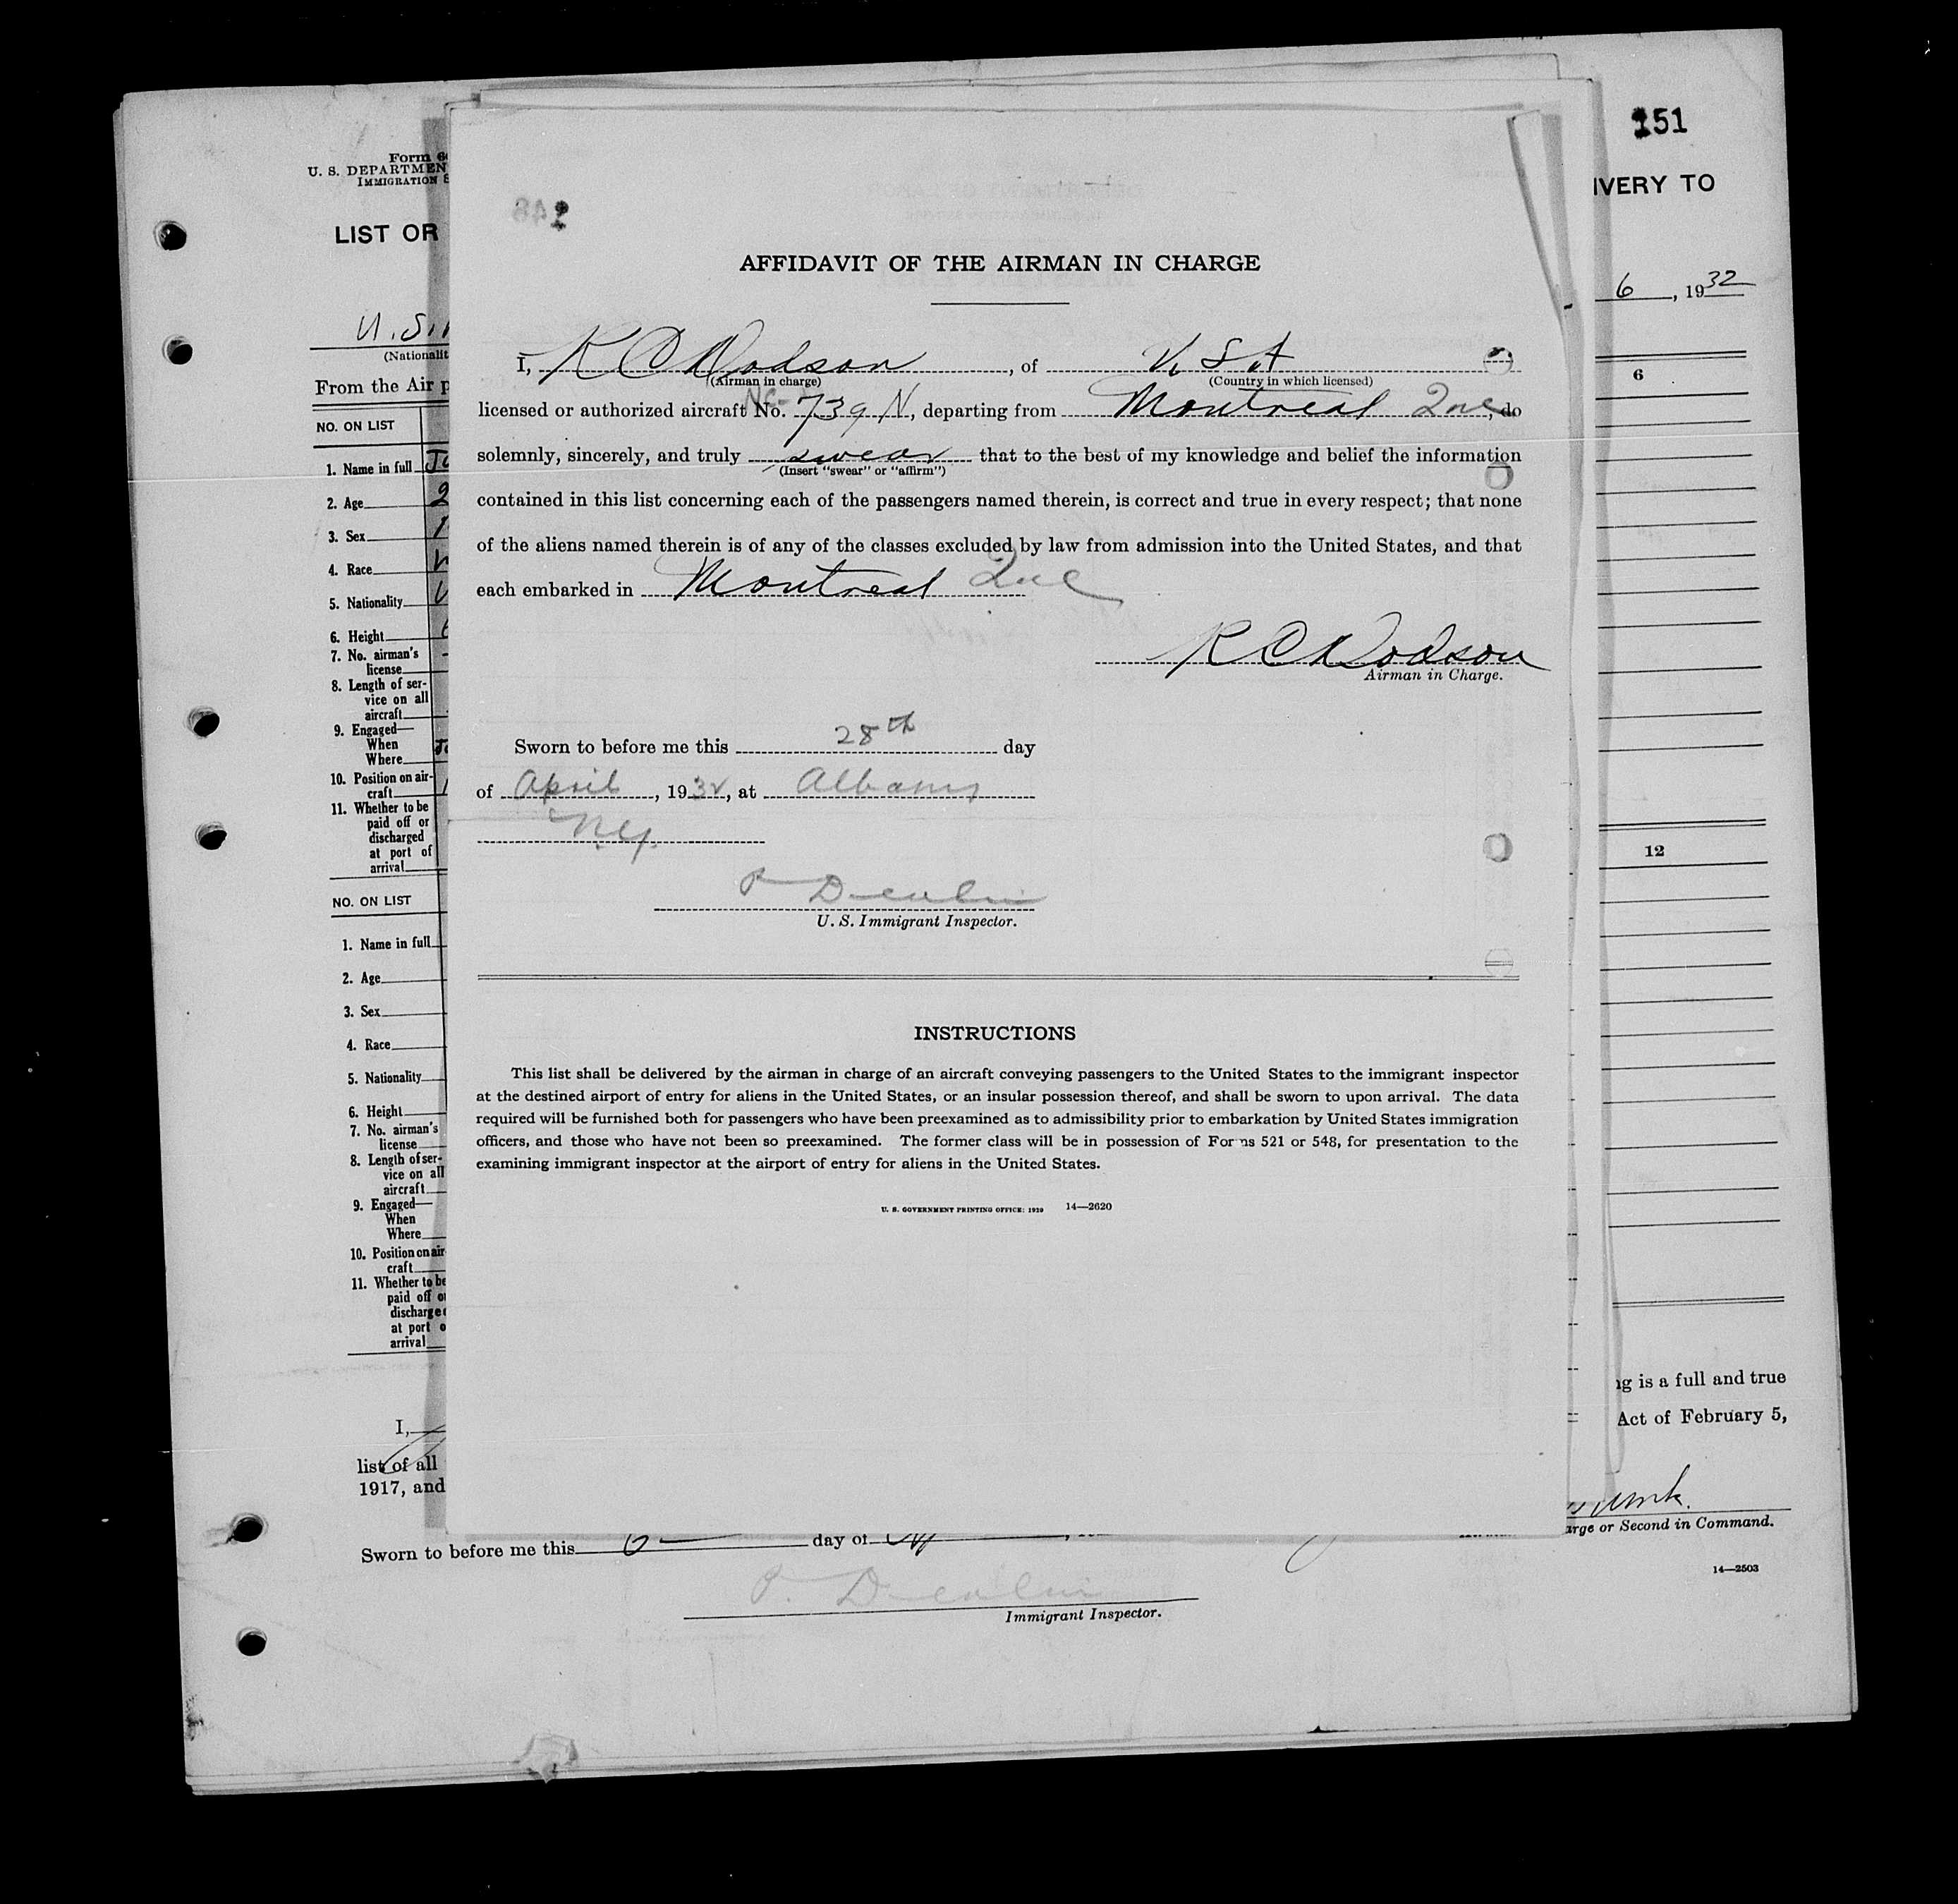 151
Form
U. S. DEPARTMEN
IMMIGRATION
LIST OR
IVERY TO
6, 1932
(Nationalit
From the Air p
NO. ON LIST
6
1. Name in full
2. Age
3. Sex
4. Race
5. Nationality
6. Height
7. No. airman's
license
8. Length of ser-
vice on all
aircraft
9. Engaged—
When
Where
10. Position on air-
craft
11. Whether to be
paid off or
discharged
at port of
arrival
12
NO. ON LIST
1. Name in full
2. Age
3. Sex
4. Race
5. Nationality
6. Height
7. No. airman's
license
8. Length of ser-
vice on all
aircraft
9. Engaged—
When
Where
10. Position on air
craft
11. Whether to be
paid off o
discharge
at port o
arrival
AFFIDAVIT OF THE AIRMAN IN CHARGE
I, R C Dodson, of U S A
(Airman in charge) (Country in which licensed)
licensed or authorized aircraft No. NC- 739 N, departing from Montreal Que, do
solemnly, sincerely, and truly swear that to the best of my knowledge and belief the information
(Insert "swear" or "affirm")
contained in this list concerning each of the passengers named therein, is correct and true in every respect; that none
of the aliens named therein is of any of the classes excluded by law from admission into the United States, and that
each embarked in Montreal Que
R C Dodson
Airman in Charge.
Sworn to before me this 28th day
of April, 1932, at Albany
N.Y.
U. S. Immigrant Inspector.
INSTRUCTIONS
This list shall be delivered by the airman in charge of an aircraft conveying passengers to the United States to the immigrant inspector
at the destined airport of entry for aliens in the United States, or an insular possession thereof, and shall be sworn to upon arrival. The data
required will be furnished both for passengers who have been preexamined as to admissibility prior to embarkation by United States immigration
officers, and those who have not been so preexamined. The former class will be in possession of Forms 521 or 548, for presentation to the
examining immigrant inspector at the airport of entry for aliens in the United States.
U. S. GOVERNMENT PRINTING OFFICE: 1929 14—2620
I,
ng is a full and true
list of all
Act of February 5,
1917, and
arge or Second in Command.
Sworn to before me this 6 day of
14—2503
Immigrant Inspector.